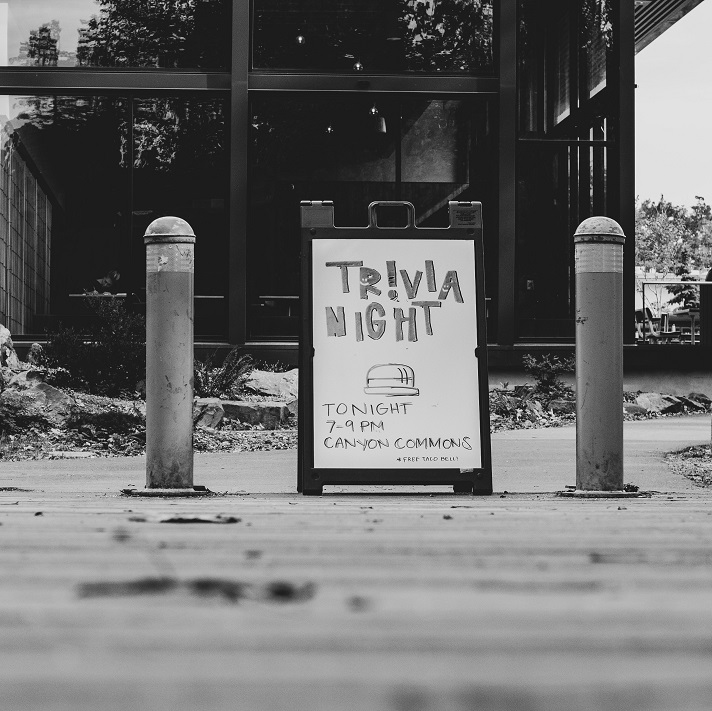 TR!VIA
NIGHT
TONIGHT
7-9 PM
CANYON COMMONS
+ FREE TACO BELL!